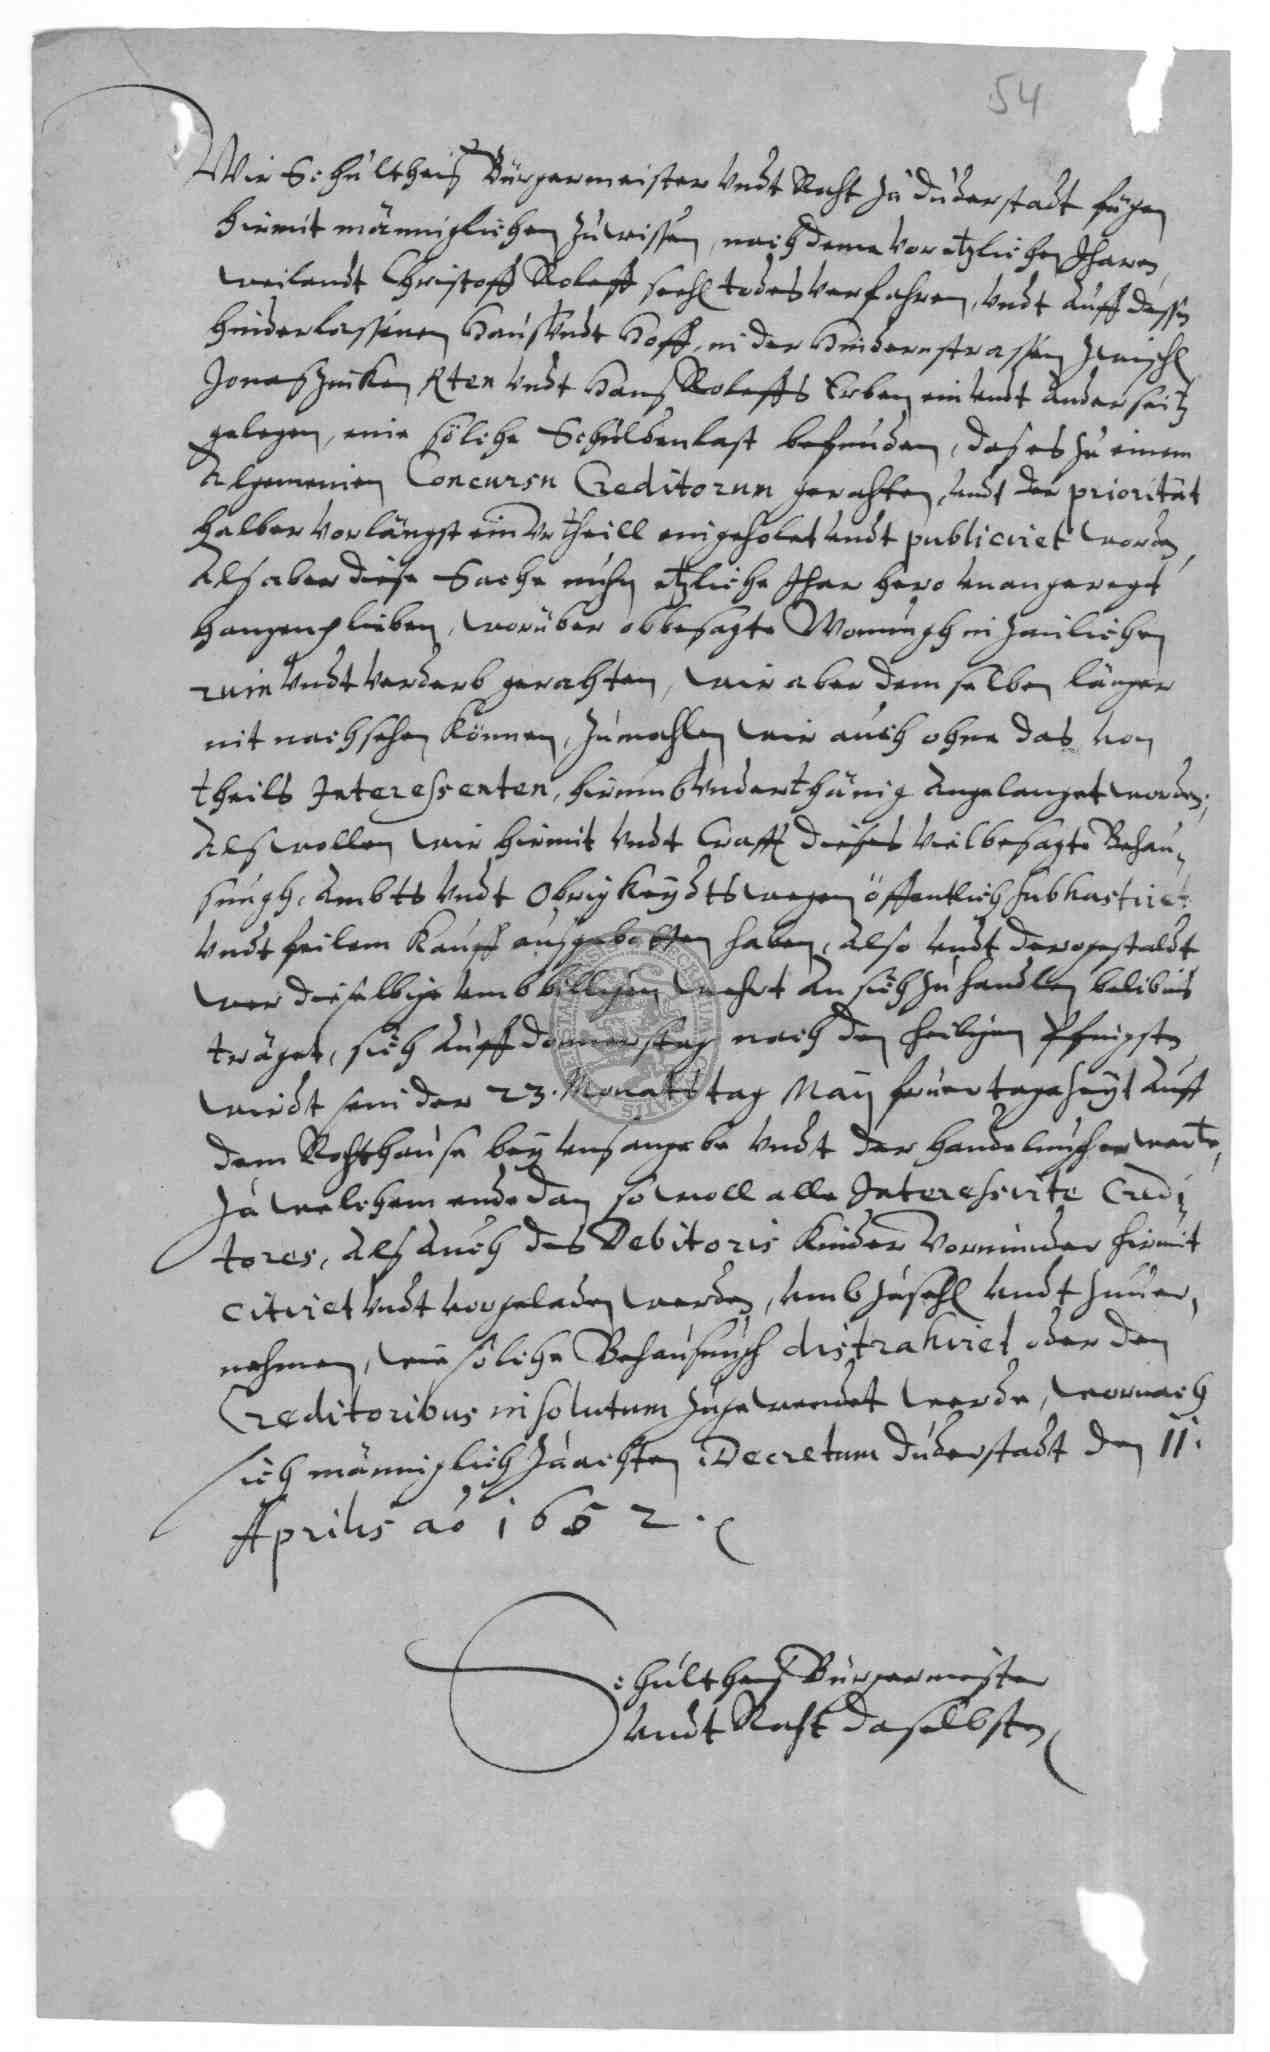 54
Wir Schultheis Bürgermeister vndt Raht zu Duderstadt fügen
hirmit männiglichen zuwissen, nach deme vor etzlichen Jharen,
weilandt Christoff Roleff seehl todes verfahren, vndt auff dessen
hinderlassenen Haus vndt Hoff, in der Hindernstrassen zwischen
Jonas vndt Hans Roleffs Erben ein vndt anderseitz
gelegen, eine solche Schuldenlast befunden, das es zu einem
Algemeinen Concursu Creditorum gerahten, vndt der prioritat
halber vorlängst ein Vrtheill eingeholet vndt publiciret worden,
Als aber diese Sache nuhn etzliche Jhar hero vnangeregt
hangenplieben, worüber obbesagte Wonungh in zimlichen
ruin vndt verderb gerahten, wir aber dem selben länger
nit nachsehen können, zumahlen wir auch ohne das von
theils Interessenten, hirumb vnderthänig angelanget worden;
Als wollen wir hirmit vndt Crafft dieses vielbesagte Behau-
sungh, Ambts vndt Obrigkeydts wegen öffentlich subhastiret
vndt feilem Kauff ausgebotten haben, also vndt derogestaldt
wer dieselbige vmb billigen wehrt an sich zu handlen beliben
träget, sich auff donnerstag nach den heiligen Pfingsten
wirdt sein der 23. Monatstag Maij fruer tagesZeyt auff
dem Rahthause bey vns angebe vndt der handelungh erwarte,
Zu welchem ende dan so woll alle Interessirte Credi-
tores, als auch des Debitoris Kinder Vormünder hirmit
citiret vndt vorgeladen werden, vmb zusehen vndt zuuer-
nehmen, wie solche Behausungh distrahiret oder den
Creditoribus in solutum zugewendet werde, wornach
sich männiglich zu achten. Decretum Duderstadt den 11.
Aprilis ao 1652.
Schultheis Bürgermeister
vndt Raht daselbsten